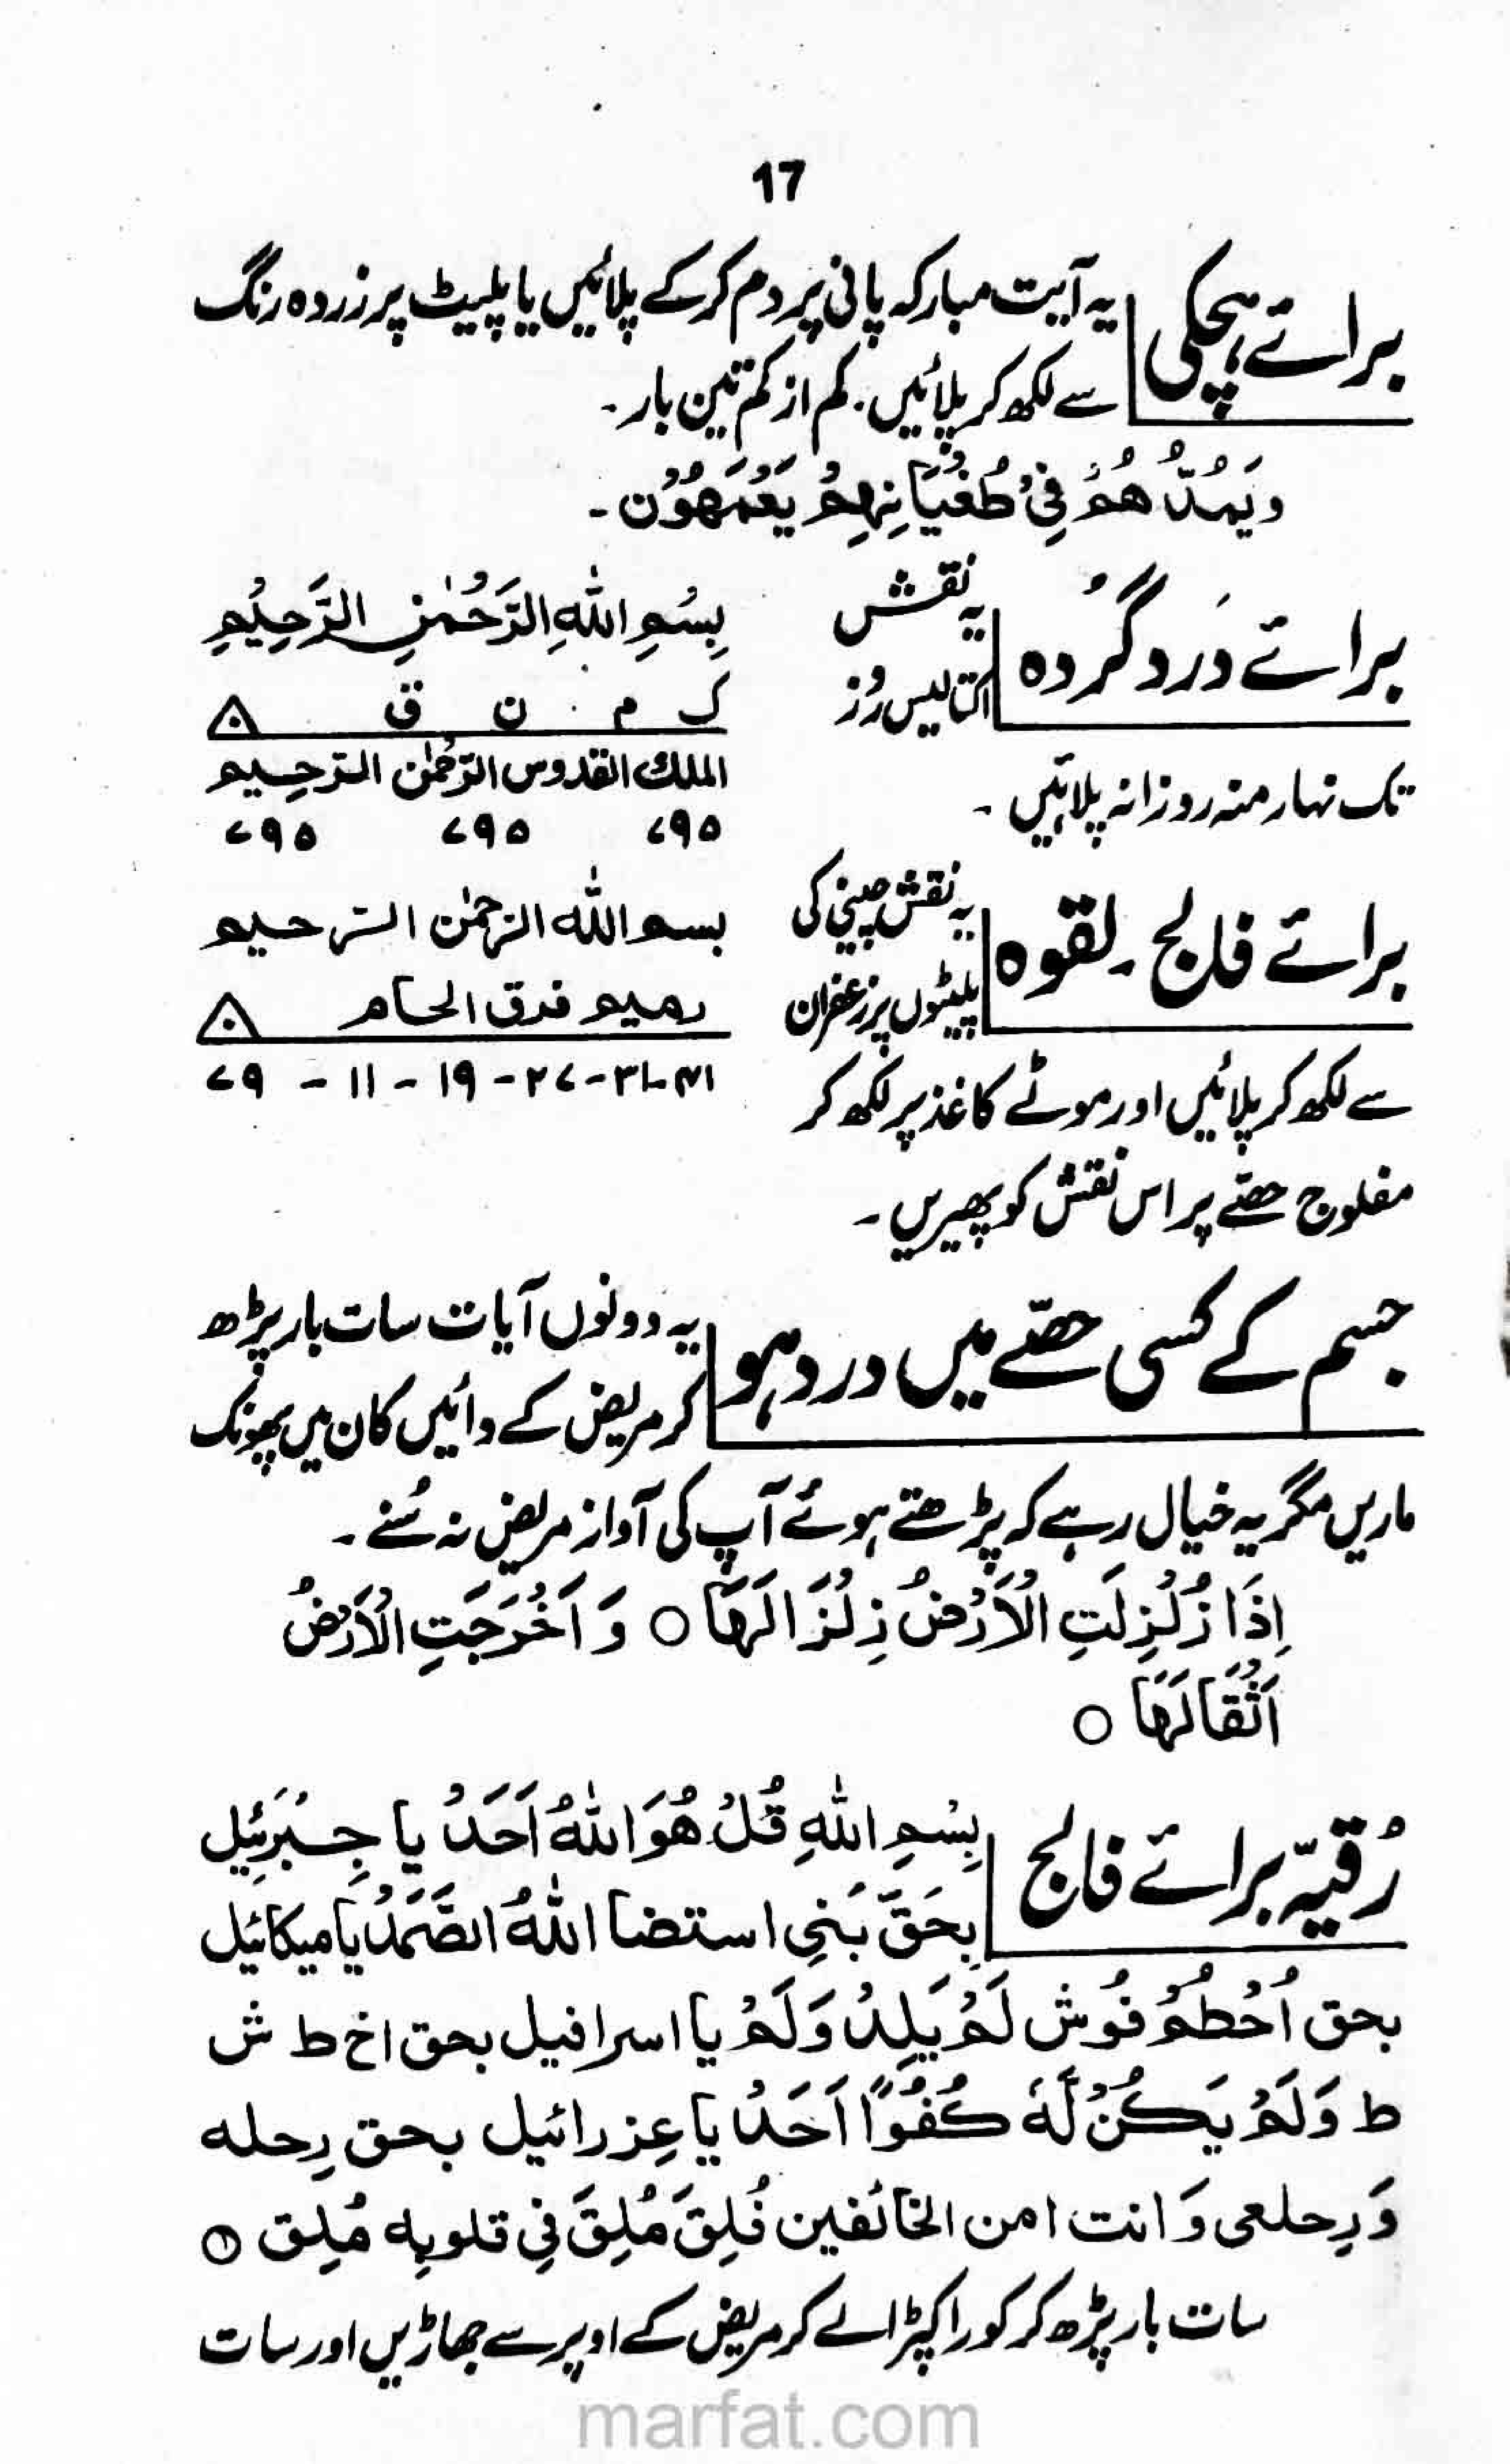 17
برائے ہچکی یہ آیت مبارکہ پانی پر دم کرکے پلائیں یا پلیٹ پر زردہ رنگ
سے لکھ کر پلائیں۔ کم از کم تین بار۔
ویَمُدُّ هُمْ فِیْ طُغْیَانِهِمْ یَعْمَهُوْن۔
برائے دَرد گُردہ یہ نقش
اکتالیس رُوز
تک نہار منہ روزانہ پلائیں۔
بِسْمِ اللهِ الرَّحْمٰنِ الرَّحِیْمِ
ک م ن ق ۸
الملك القدوس الرَّحْمٰن الرَّحِیم
۷۹۵ ۷۹۵ ۷۹۵
برائے فالج۔ لقوہ یہ نقش چینی کی
پلیٹوں پر زعفران
سے لکھ کر پلائیں اور موٹے کاغذ پر لکھ کر
مفلوج حصّے پر اس نقش کو پھیریں۔
بسم الله الرحمٰن الرحیم
رمیم فدق الحام ۸
۴۱-۳۱-۲۷-۱۹-۱۱-۷۹
جسم کے کسی حصّے میں درد ہو یہ دونوں آیات سات بار پڑھ
کر مریض کے دائیں کان میں پھونک
ماریں مگر یہ خیال رہے کہ پڑھتے ہوئے آپ کی آواز مریض نہ سُنے۔
اِذَا زُلْزِلَتِ الْاَرْضُ زِلْزَالَهَا ○ وَ اَخْرَجَتِ الْاَرْضُ
اَثْقَالَهَا ○
رُقیہّ برائے فالج بِسْمِ اللهِ قُلْ هُوَ اللهُ اَحَدْ یا جِبْرَئِیل
بِحَقِّ بَنِی استضا اللهُ الصَّمَدُ یا میکائیل
بحق اُحْطُمْ فُوْش لَمْ یَلِدْ وَلَمْ یا اسرافیل بحق اخ ط ش
ط وَلَمْ یَکُنْ لَّهٗ کُفُوًا اَحَدْ یا عِزرائیل بحق رِحله
وَرِحلعی وَانت امن الخائفین فُلِقَ مُلِقَ فِی قلوبِه مُلِق ○
سات بار پڑھ کر کورا کپڑا لے کر مریض کے اوپر سے جھاڑیں اور سات
marfat.com